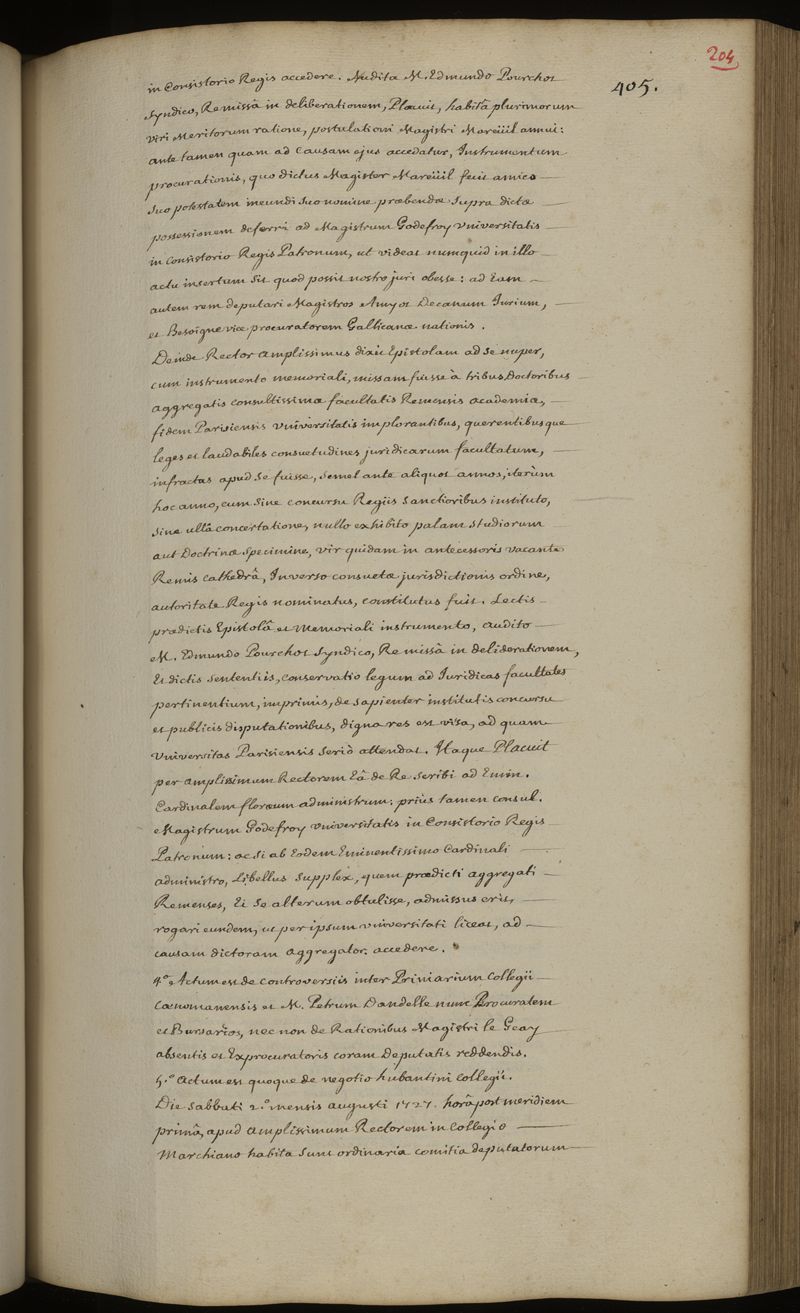 204
405.
in Consistorio Regis accedere. Audito M. Edmundo Pourchot
Syndico, Re missâ in deliberationem, Placuit, habitâ plurimorum
viri Meritorum ratione, postulationi Magistri Mareüil annui:
ante tamen quam ad causam ejus accedatur, Instrumentum
procurationis, quo dictus Magister Mareüil fecit amico
suo potestatem ineundi suo nomine præbendæ supra dictæ
possessionem deferri ad Magistrum Godefroy Vniversitatis
in Consistorio Regis Patronum, ut videat numquid in illo
actu insertum sit quod possit nostro juri obesse: ad Eam
autem rem deputari Magistros Amyot Decanum Jurium,
et Besoigne vice procuratorem Gallicanæ nationis.
Deinde Rector amplissimus dixit Epistolam ad se nuper,
cum instrumento memoriali, missam fuisse à tribus Doctoribus
aggregatis consultissimæ facultatis Remensis academiæ,
fidem Parisiensis Vniversitatis implorantibus, querentibusque
leges et laudabiles consuetudines juridicarum facultatum,
infractas apud se fuisse, semel ante aliquot annos, iterùm
hoc anno, cum sine concursu Regiis Sanctioribus instituto,
sine ullâ concertatione, nullo exhibito palam studiorum
aut Doctrinæ specimine, vir quidam in antecessoris vacante
Remis cathedrâ, Inverso consuetæ jurisdictionis ordine,
autoritate Regis nominatus, constitutus fuit. Lectis
prædictis Epistolâ et Memoriali instrumento, audito
M. Edmundo Pourchot Syndico, Re missâ in deliberationem,
Et dictis sententiis, conservatio legum ad Juridicas facultates
pertinentium, imprimis, de sapienter institutis concursu
et publicis disputationibus, digna res est visa, ad quam
Vniversitas Parisiensis seriò attendat. Itaque Placuit
per amplissimum Rectorem Eâ de Re scribi ad Emin.
Cardinalem floræum administrum; priùs tamen consul.
Magistrum Godefroy Vniversitatis in Consistorio Regis
Patronum: ac si ab Eodem Eminentissimo Cardinali
administro, Libellus supplex, quem prædicti aggregati
Remenses, Ei se alterum obtulisse, admissus erit,
rogari eundem, ut per ipsum Vniversitati liceat, ad
causam dictorum aggregator. accedere.
4.º Actum est de controversiis inter Primarium Collegii
Cænomanensis et M. Petrum Dandelle nunc Procuratem
et Bursarios, nec non de Rationibus Magistri le Geay
absentis et Exprocuratoris coram Deputatis reddendis.
5.º Actum est quoque de negotio hubantini Collegii.
Die Sabbati 2.º mensis augusti 1727. horâ post meridiem
primâ, apud amplissimum Rectorem in Collegio
Marchiano habita sunt ordinaria comitia deputatorum